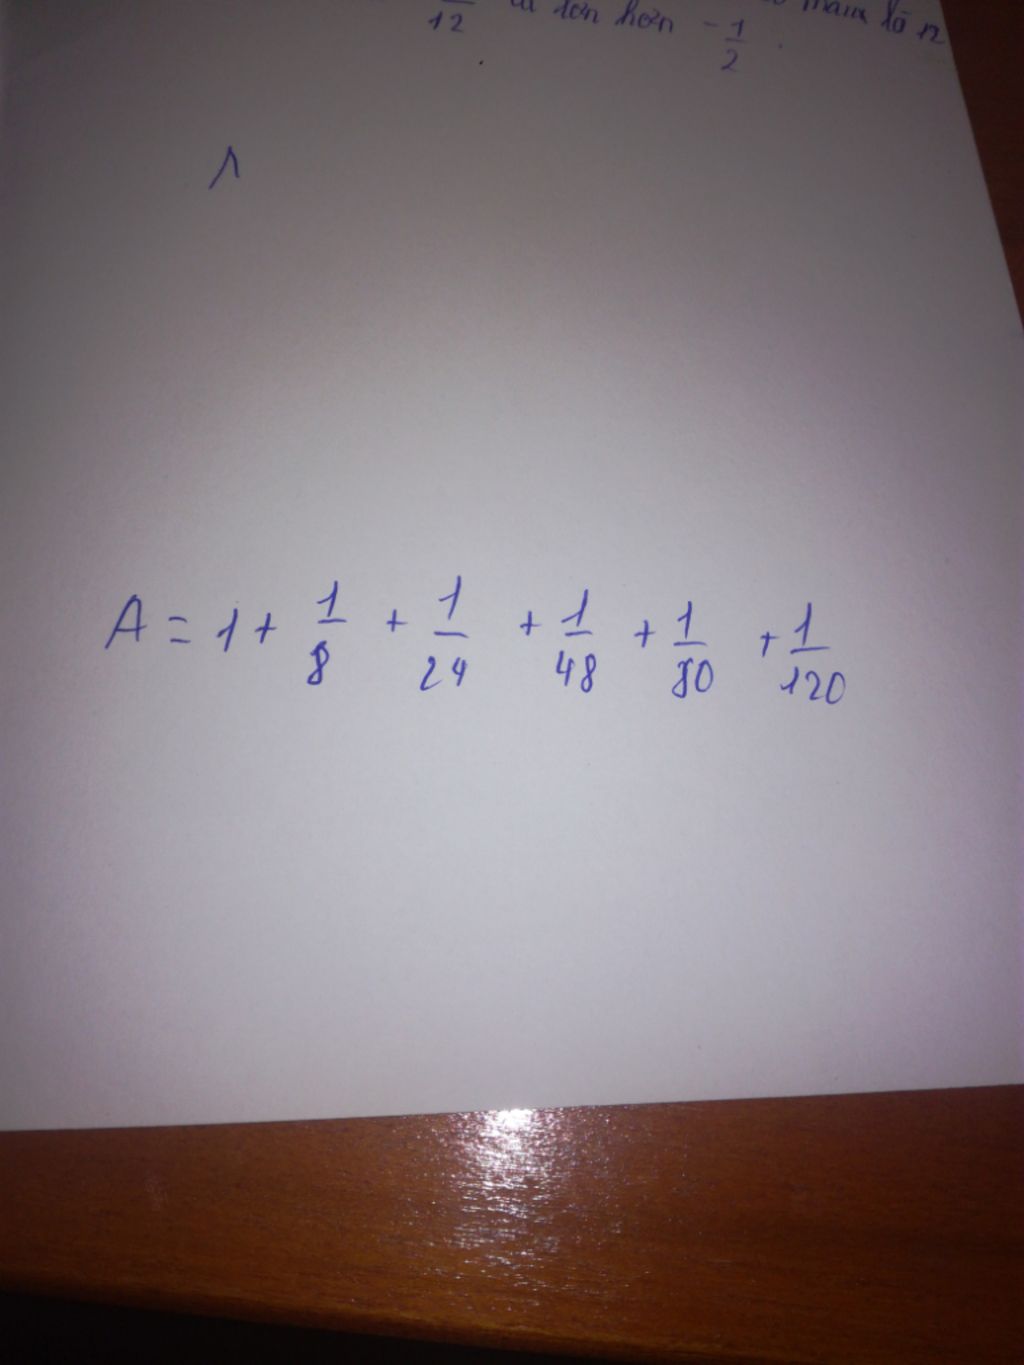 12 lớn hơn - 1/2 .
A = 1 + 1/8 + 1/24 + 1/48 + 1/80 + 1/120